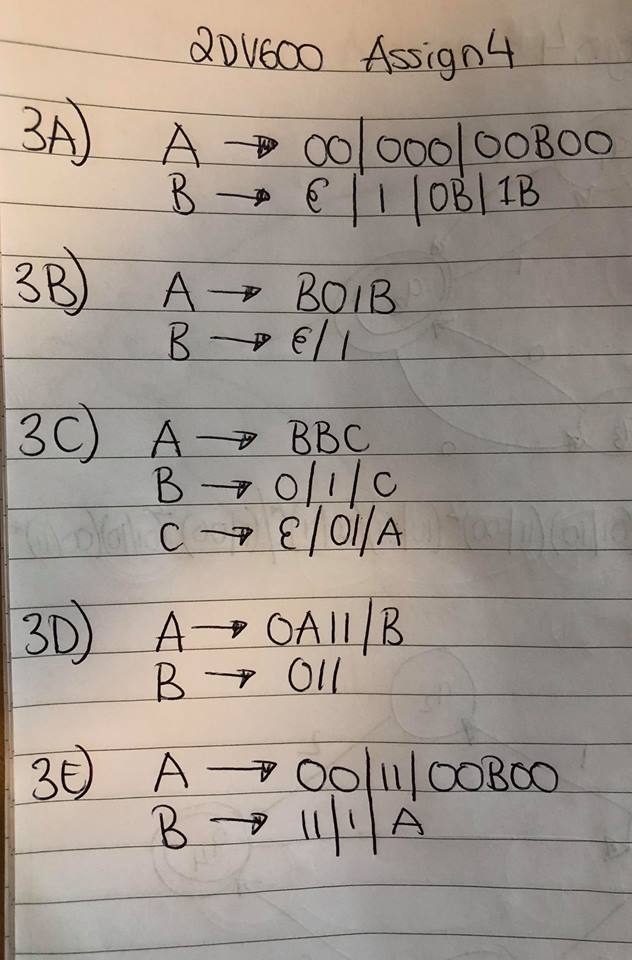 2DV600 Assign4
3A) A → 00|000|00B00
B → ε|1|0B|1B
3B) A → B01B
B → ε/1
3C) A → BBC
B → 0/1/C
C → ε/01/A
3D) A → 0A11/B
B → 011
3E) A → 00|11|00B00
B → 11|1|A